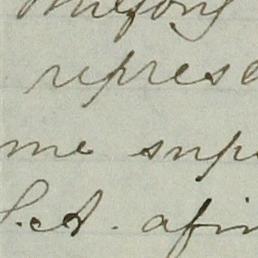 represe
me supe
S.A. afin